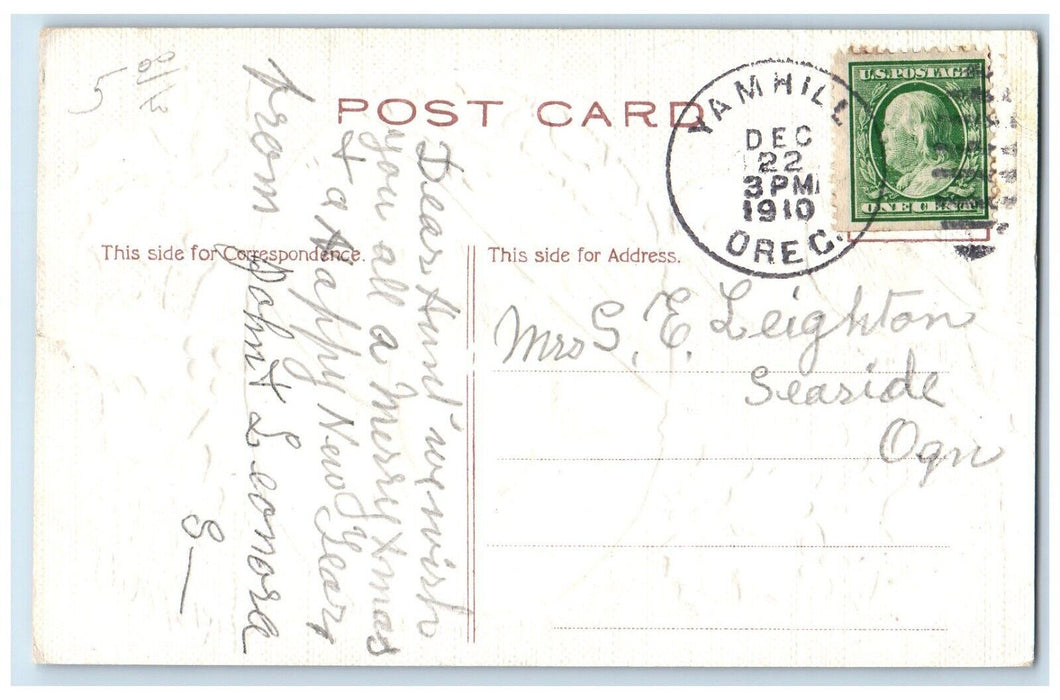 POST CARD
U.S. POSTAGE
ONE CENT
YAMHILL
DEC
22
3 PM
1910
OREG.
This side for Correspondence.
This side for Address.
Dear Aunt we wish
you all a Merry Xmas
& a Happy New Year,
from
John & Leonora
S—
Mrs S. E. Leighton
Seaside
Ogn
5